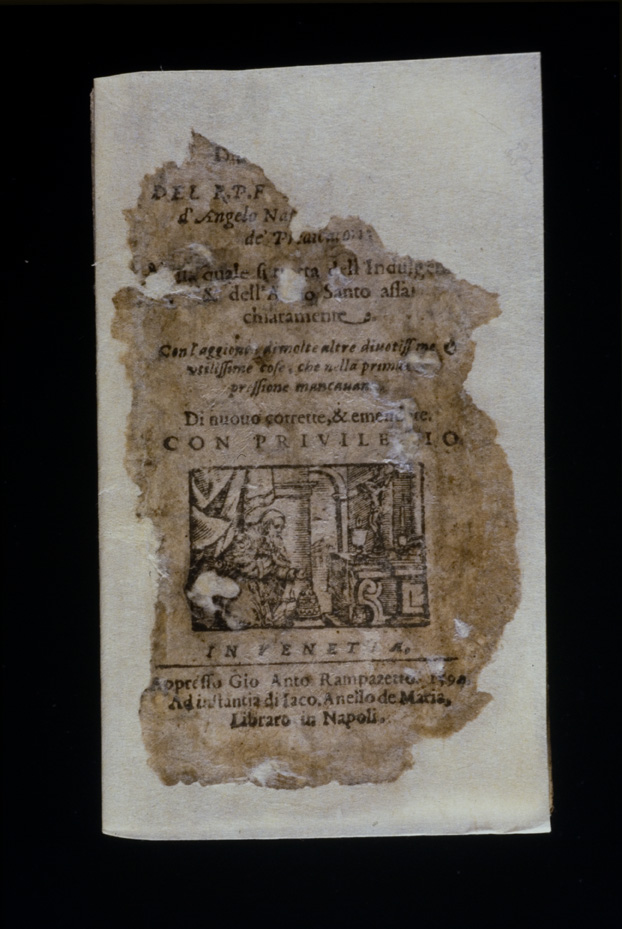 DEL R.P.F
d'Angelo
de'
quale si dell'Indulgen
& dell' Santo assai
chiaramente
Con l'aggionta di molte altre diuotissime, &
vtilissime cose, che nella prima
pressione mancauan
Di nuouo corrette, & emendate.
CON PRIVILEGIO
IN VENETIA.
Appresso Gio Anto Rampazetto.
Ad instantia di Iaco. Anello de Maria,
Libraro in Napoli.